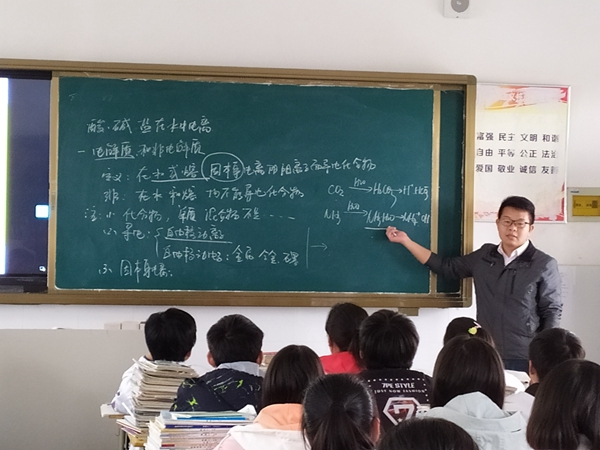 酸、碱 盐在水中电离
一 电解质 和非电解质
定义: 在水或熔 因本身电离 阴阳离子而导电化合物
非: 在水和熔 均不能导电化合物
CO₂ H₂O H₂CO₃ H⁺
注: (1) 化合物, 单质 混合物不是...
NH₃ H₂O NH₃·H₂O
(2) 导电: 自由移动离子
自由移动电子: 金属 合金 石墨
(3) 因本身电离:
富强 民主 文明 和谐
自由 平等 公正 法治
爱国 敬业 诚信 友善
7PE STYLE
JUST NOW FASHION
7